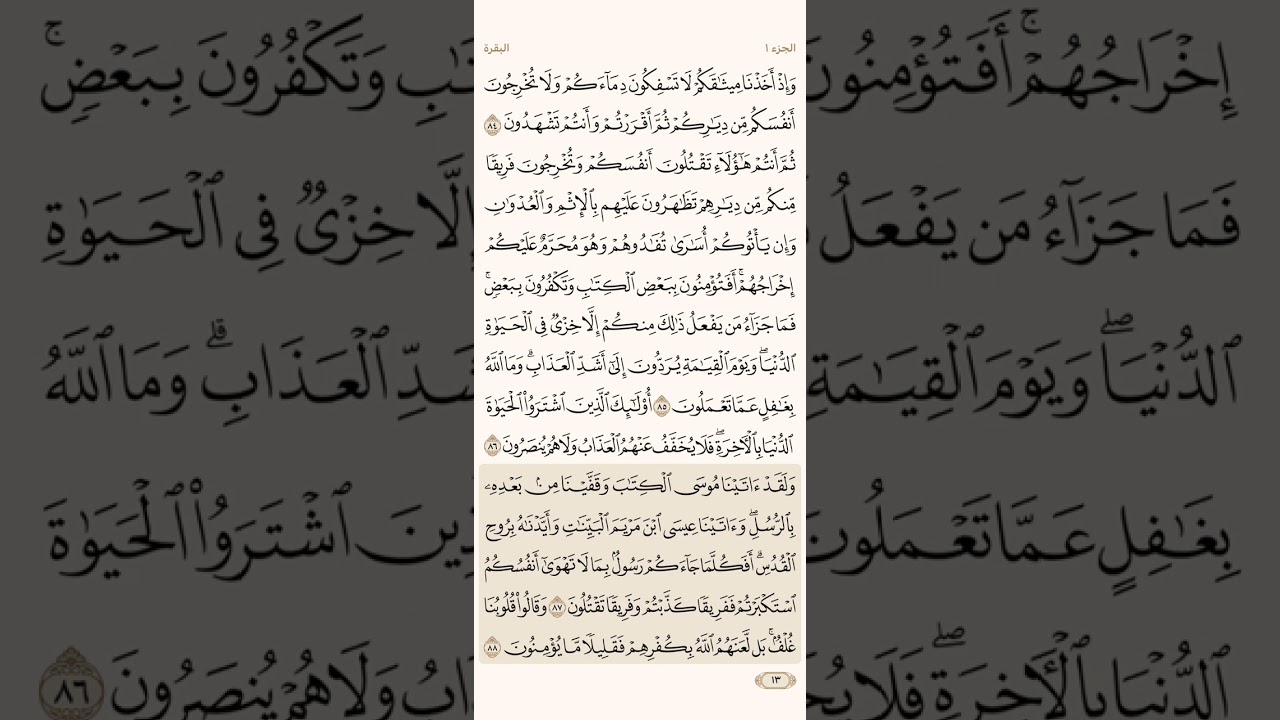 الجزء ١
البقرة
وَإِذْ أَخَذْنَا مِيثَٰقَكُمْ لَا تَسْفِكُونَ دِمَآءَكُمْ وَلَا تُخْرِجُونَ
أَنفُسَكُم مِّن دِيَٰرِكُمْ ثُمَّ أَقْرَرْتُمْ وَأَنتُمْ تَشْهَدُونَ ٨٤
ثُمَّ أَنتُمْ هَٰٓؤُلَآءِ تَقْتُلُونَ أَنفُسَكُمْ وَتُخْرِجُونَ فَرِيقًا
مِّنكُم مِّن دِيَٰرِهِمْ تَظَٰهَرُونَ عَلَيْهِم بِٱلْإِثْمِ وَٱلْعُدْوَٰنِ
وَإِن يَأْتُوكُمْ أُسَٰرَىٰ تُفَٰدُوهُمْ وَهُوَ مُحَرَّمٌ عَلَيْكُمْ
إِخْرَاجُهُمْ ۚ أَفَتُؤْمِنُونَ بِبَعْضِ ٱلْكِتَٰبِ وَتَكْفُرُونَ بِبَعْضٍ ۚ
فَمَا جَزَآءُ مَن يَفْعَلُ ذَٰلِكَ مِنكُمْ إِلَّا خِزْىٌ فِى ٱلْحَيَوٰةِ
ٱلدُّنْيَا ۖ وَيَوْمَ ٱلْقِيَٰمَةِ يُرَدُّونَ إِلَىٰٓ أَشَدِّ ٱلْعَذَابِ ۗ وَمَا ٱللَّهُ
بِغَٰفِلٍ عَمَّا تَعْمَلُونَ ٨٥ أُو۟لَٰٓئِكَ ٱلَّذِينَ ٱشْتَرَوُا۟ ٱلْحَيَوٰةَ
ٱلدُّنْيَا بِٱلْءَاخِرَةِ ۖ فَلَا يُخَفَّفُ عَنْهُمُ ٱلْعَذَابُ وَلَا هُمْ يُنصَرُونَ ٨٦
وَلَقَدْ ءَاتَيْنَا مُوسَى ٱلْكِتَٰبَ وَقَفَّيْنَا مِنۢ بَعْدِهِۦ
بِٱلرُّسُلِ ۖ وَءَاتَيْنَا عِيسَى ٱبْنَ مَرْيَمَ ٱلْبَيِّنَٰتِ وَأَيَّدْنَٰهُ بِرُوحِ
ٱلْقُدُسِ ۗ أَفَكُلَّمَا جَآءَكُمْ رَسُولٌۢ بِمَا لَا تَهْوَىٰٓ أَنفُسُكُمُ
ٱسْتَكْبَرْتُمْ فَفَرِيقًا كَذَّبْتُمْ وَفَرِيقًا تَقْتُلُونَ ٨٧ وَقَالُوا۟ قُلُوبُنَا
غُلْفٌۢ ۚ بَل لَّعَنَهُمُ ٱللَّهُ بِكُفْرِهِمْ فَقَلِيلًا مَّا يُؤْمِنُونَ ٨٨
١٣